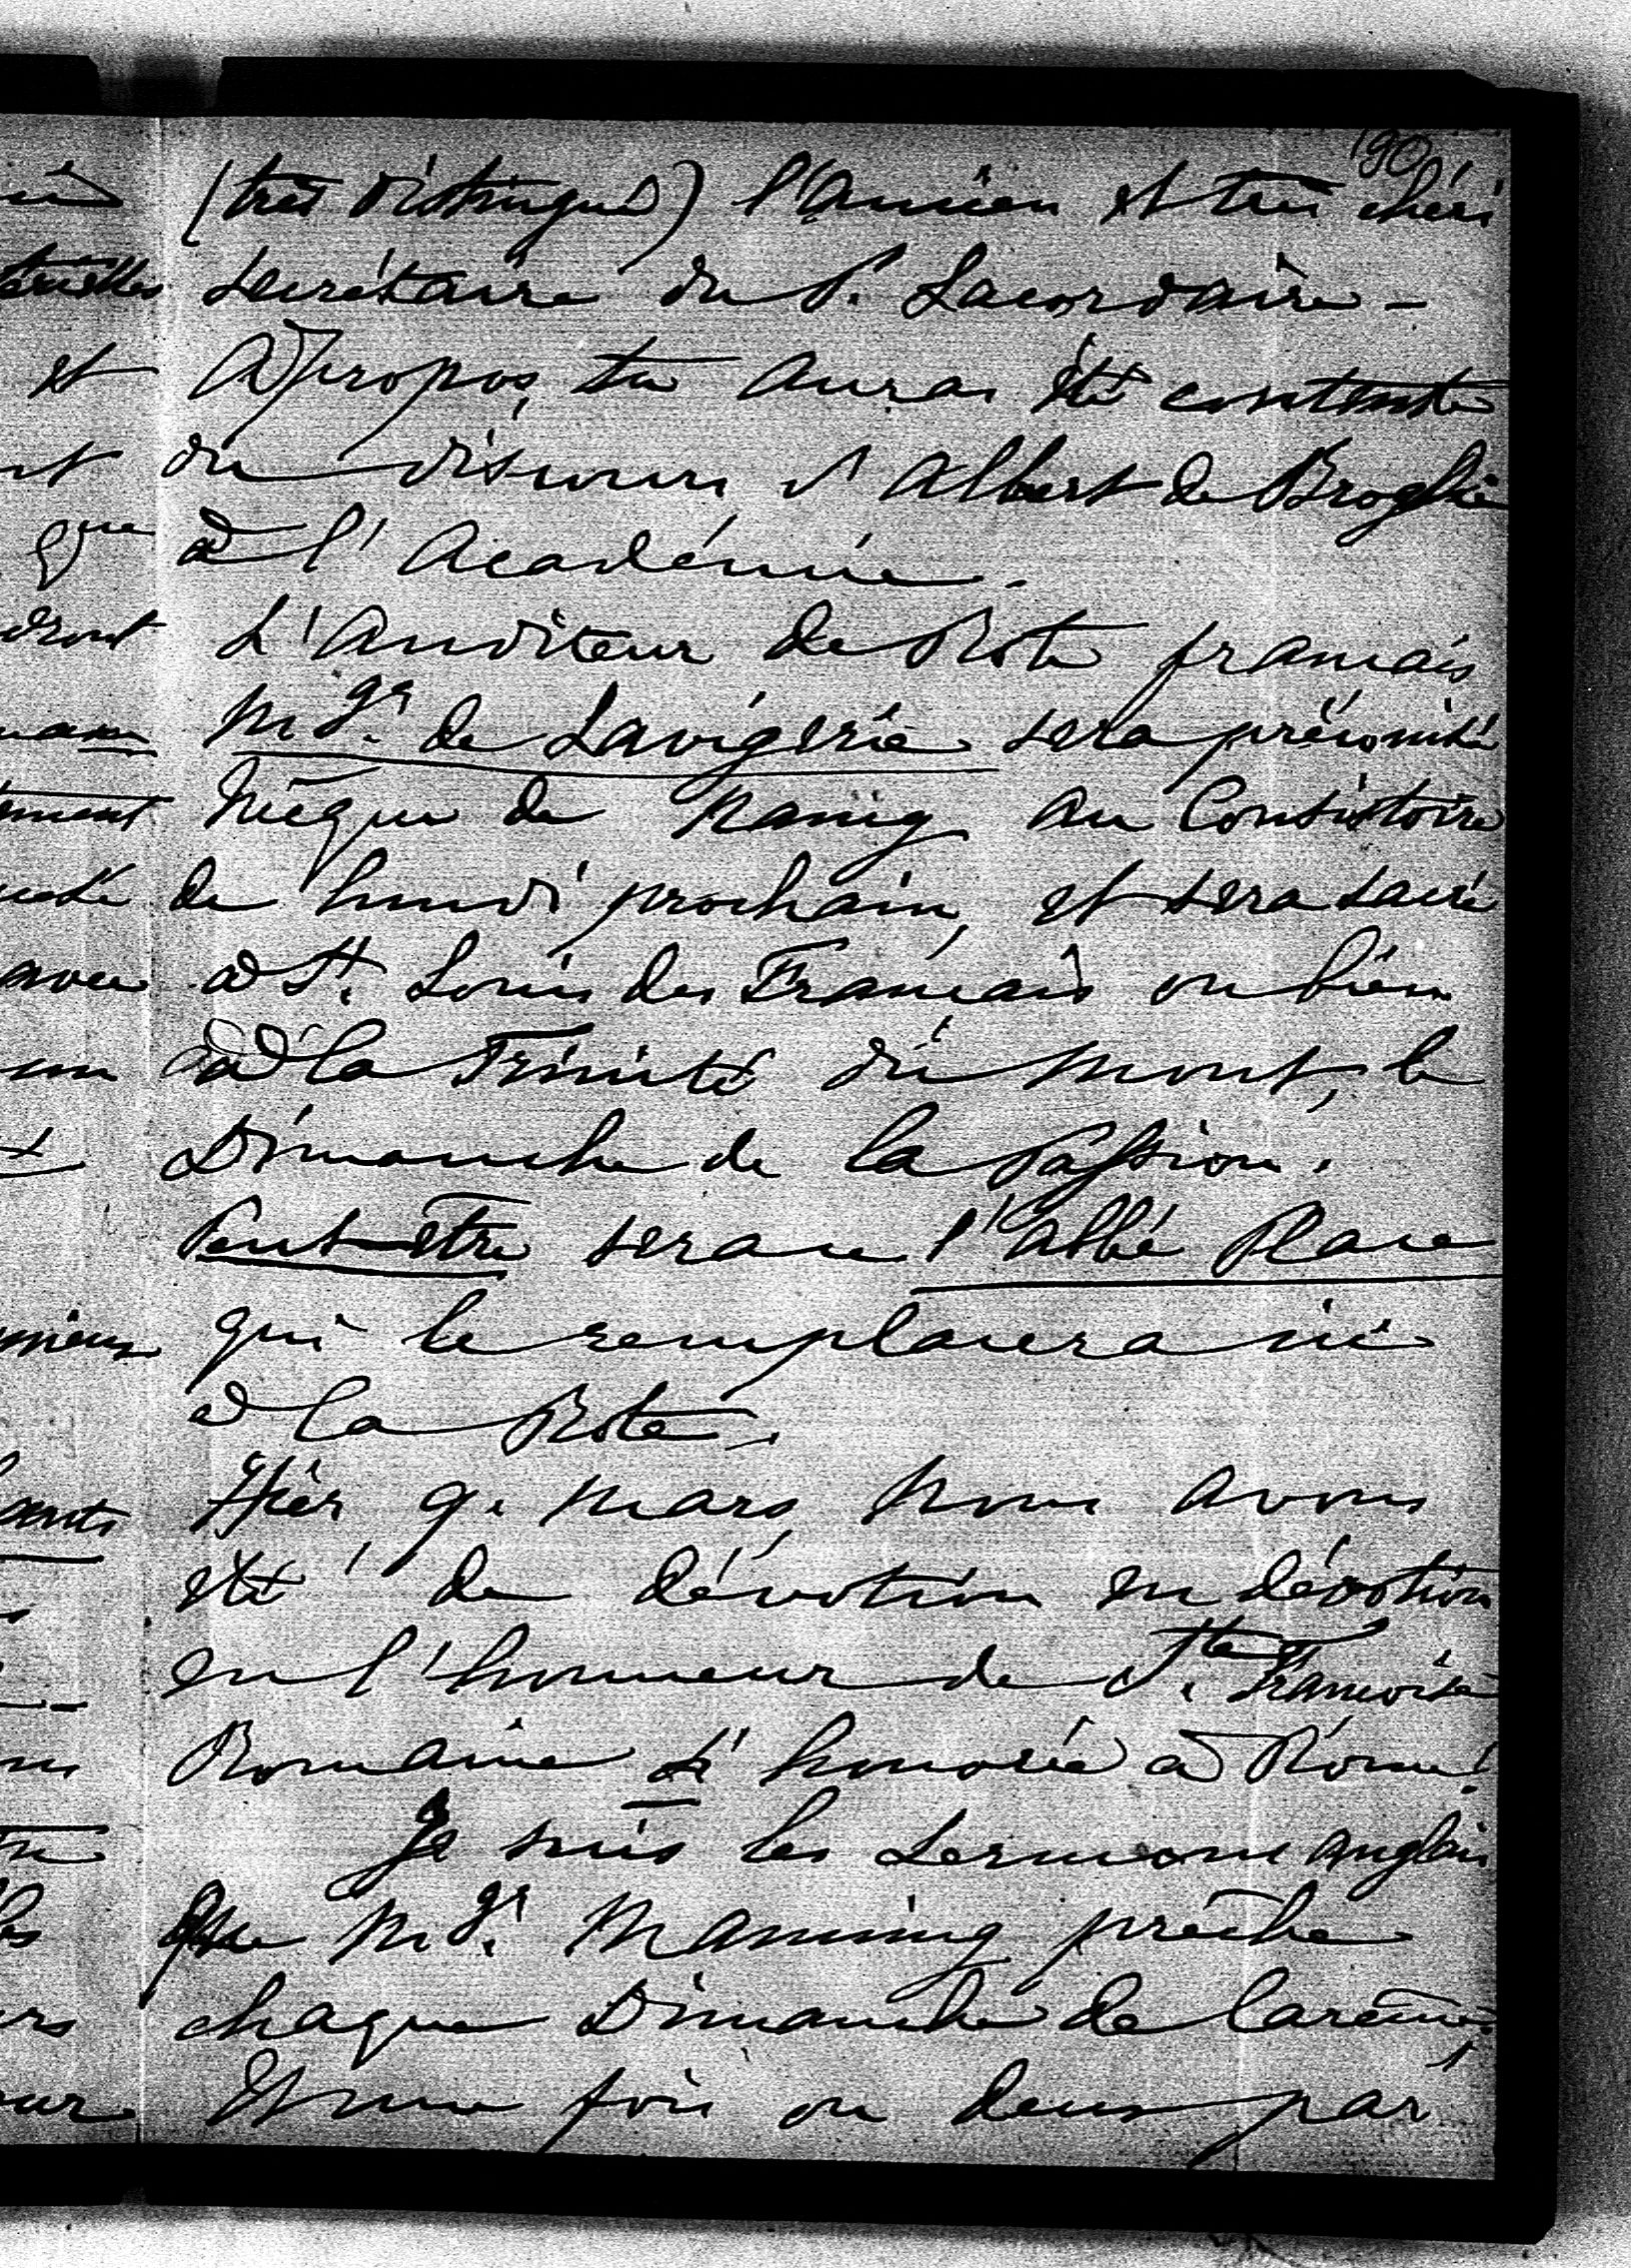 190
(très distingué) l'ancien et très chéri
secrétaire du P. Lacordaire -
A propos, tu auras été contente
du discours d'Albert de Broglie
à l'Académie.
L'auditeur de Rote français
Mgr. de Lavigerie sera préconisé
Évêque de Nancy au Consistoire
de lundi prochain, et sera sacré
à St. Louis des Français ou bien
à la Trinité du Mont, le
Dimanche de la Passion.
Peut-être sera ce l'abbé Place
qui le remplacera ici
à la Rote.
Hier 9. Mars, nous avons
été de dévotion en dévotion
en l'honneur de Ste. Françoise
Romaine si honorée à Rome!
Je suis les Sermons anglais
que Mgr. Manning prêche
chaque Dimanche de Carême,
Et une fois ou deux par
et
que
avec
un